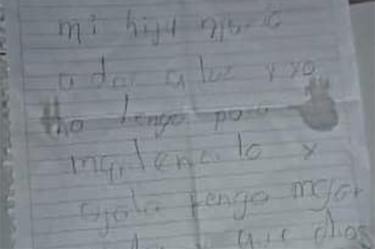 mi hija
a dar a luz y yo
no tengo para
mantenerlo y
ojala tenga
que dios